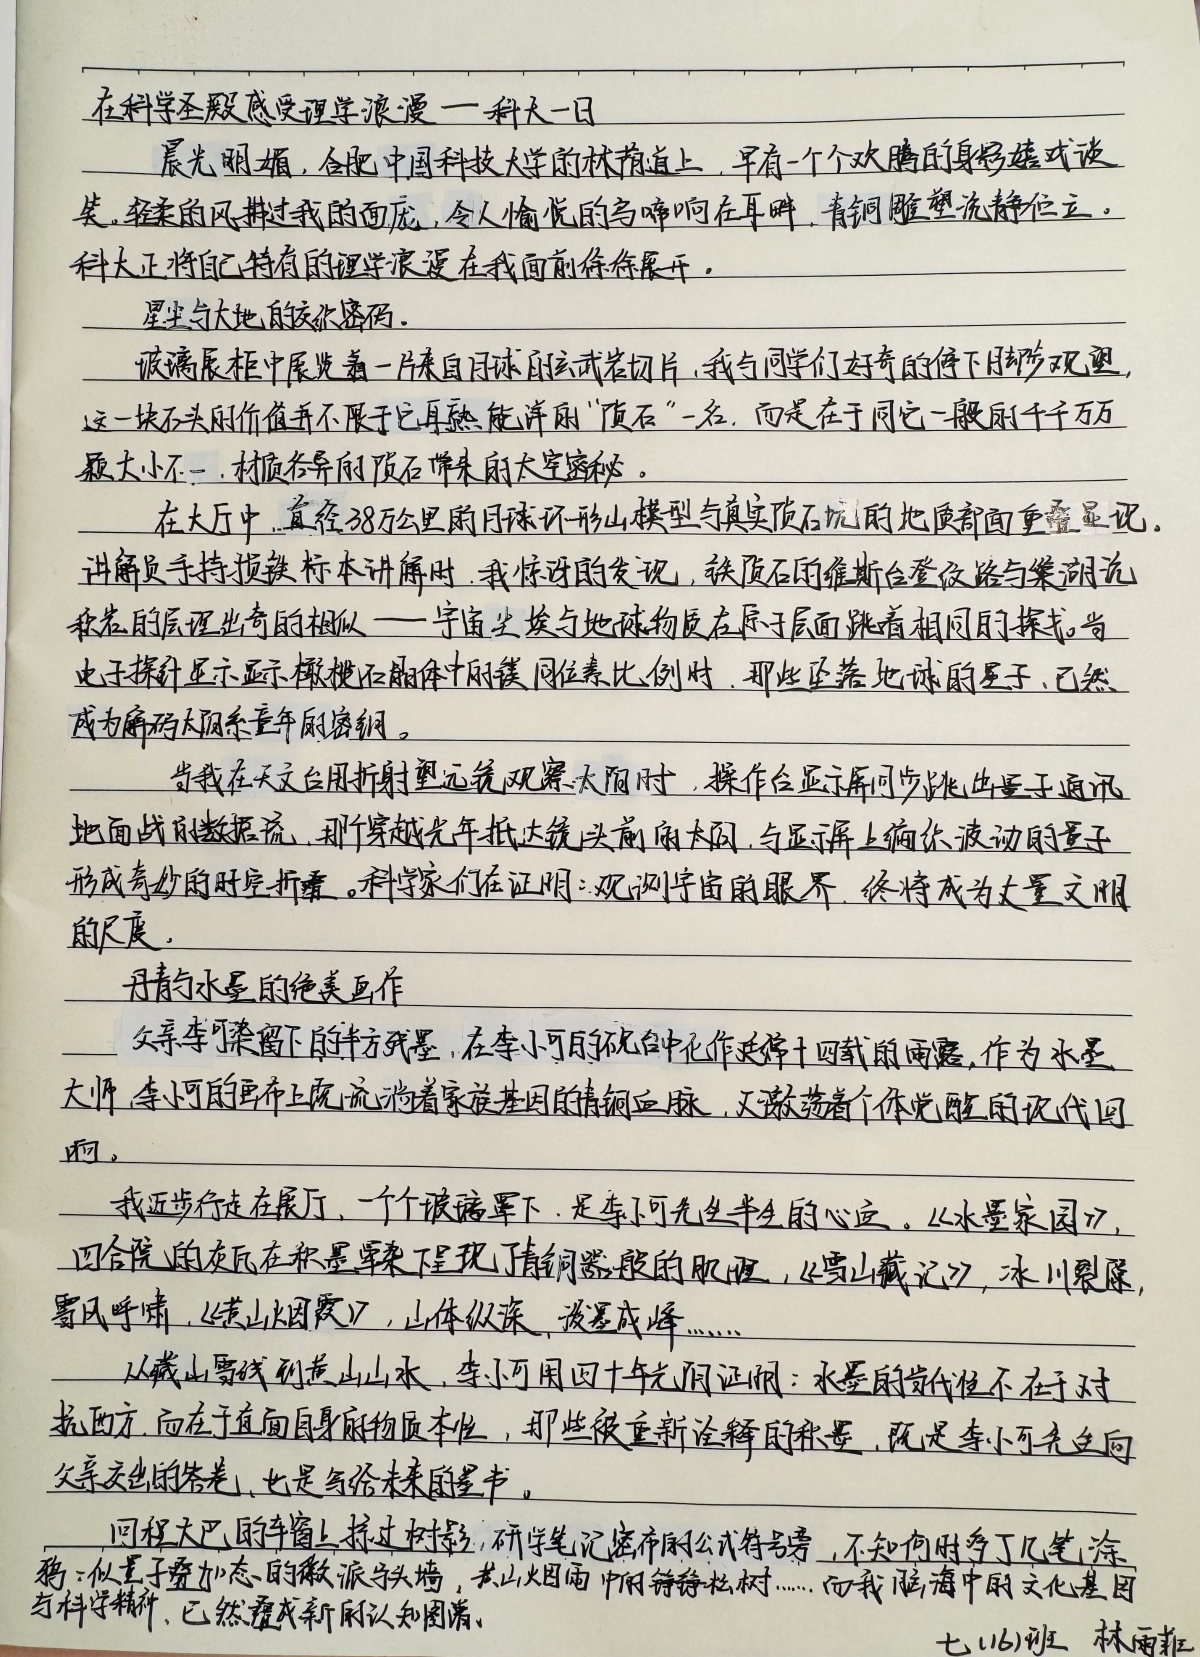 在科学圣殿感受理学浪漫——科大一日
晨光明媚，合肥中国科技大学的林荫道上，早有一个个欢腾的身影嬉戏谈
笑。轻柔的风拂过我的面庞，令人愉悦的鸟啼响在耳畔，青铜雕塑沉静伫立。
科大正将自己特有的理学浪漫在我面前徐徐展开。
星尘与大地的交织密码。
玻璃展柜中展览着一片来自月球的玄武岩切片，我与同学们好奇的停下脚步观望，
这一块石头的价值并不限于它耳熟能详的“陨石”一名，而是在于同它一般的千千万万
颗大小不一、材质各异的陨石带来的太空密秘。
在大厅中，直径38万公里的月球环形山模型与真实陨石坑的地质剖面重叠显现。
讲解员手持损铁标本讲解时，我惊讶的发现，铁陨石的维斯台登纹路与巢湖沉
积岩的层理出奇的相似——宇宙尘埃与地球物质在原子层面跳着相同的探戈。当
电子探针显示显示橄榄石晶体中的镁同位素比例时，那些坠落地球的星子、已然
成为解码太阳系童年的密钥。
当我在天文台用折射望远镜观察太阳时，操作台显示屏同步跳出量子通讯
地面战的数据流，那个穿越光年抵达镜头前的太阳，与显示屏上编织波动的量子
形成奇妙的时空折叠。科学家们在证明：观测宇宙的眼界，终将成为丈量文明
的尺度。
丹青与水墨的绝美画作
父亲李可染留下的半方残墨，在李小可的砚台中化作延绵十四载的雨露，作为水墨
大师，李小可的画布上既流淌着家族基因的青铜血脉，又激荡着个体觉醒的现代回
响。
我迈步行走在展厅，一个个玻璃罩下，是李小可先生半生的心血。《水墨家园》，
四合院的灰瓦在积墨晕染下呈现了青铜器般的肌理，《雪山藏记》，冰川裂隙，
雪风呼啸，《黄山烟霞》，山体纵深，泼墨成峰……
从藏山雪线到黄山山水，李小可用四十年光阴证明：水墨的当代性不在于对
抗西方，而在于直面自身的物质本性，那些被重新诠释的积墨，既是李小可先生向
父亲交出的答卷、也是写给未来的墨书。
回程大巴的车窗上掠过树影，研学笔记密布的公式符号旁，不知何时多了几笔涂
鸦：似量子叠加态的徽派马头墙，黄山烟雨中的铮铮松树……而我脑海中的文化基因
与科学精神，已然叠成新的认知图谱。
七(16)班 林雨菲